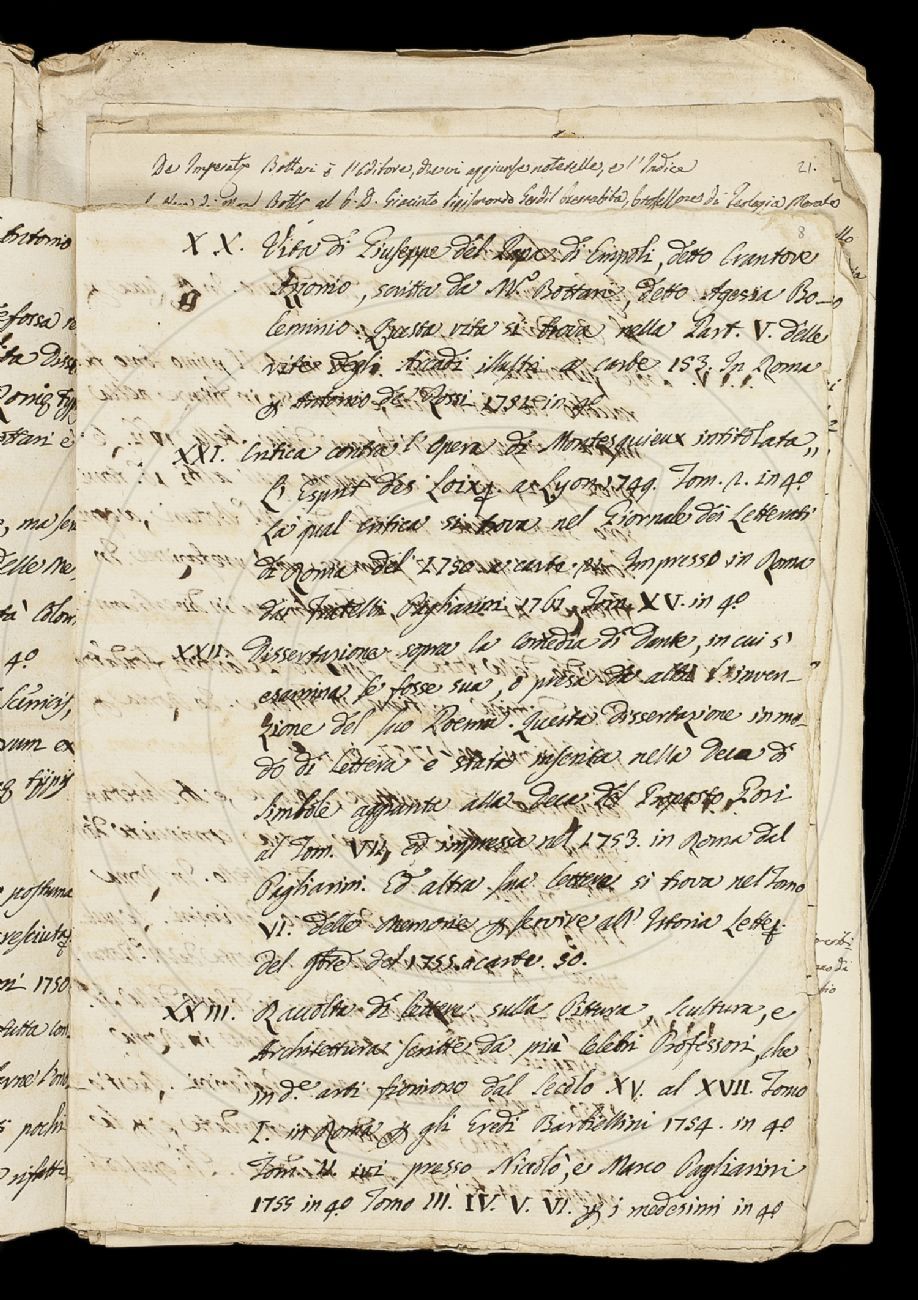 De Bottari è l'Editore, che vi aggiunse noterelle, e l'Indice
21.
al P. D. Giacinto Gerdil Barnabita, Professore di Teologia Morale
8
XX. Vita di Giuseppe del Papa di Empoli, detto Crantore
Arionio, scritta da M.r Bottari, detto Agesia Be-
leminio. Questa vita si trova nella Part. V. delle
vite degli Arcadi illustri a carte 153. In Roma
p Antonio De' Rossi 1751 in 4º
XXI. Critica contra l'Opera di Montesquieux intitolata,,
L'Esprit des Loix p. a Lyon 1749. Tom. 2. in 4º
La qual critica si trova nel Giornale dei Letterati
di Roma del 1750. a carte 21. Impresso in Roma
dai Fratelli Pagliarini 1761. Tom. XV. in 4º
XXII. Dissertazione sopra la Comedia di Dante, in cui s'
esamina se fosse sua, o presa da altri l'inven-
zione del suo Poema. Questa Dissertazione in mo-
do di Lettera è stata inserita nella Deca di
Simbole aggiunta alla Deca del Proposto Gori
al Tom. VII, ed impressa nel 1753. in Roma dal
Pagliarini. Ed altra sua lettera si trova nel Tomo
VI. delle Memorie p servire all'Istoria Letter.
del 9bre del 1755. a carte. 30.
XXIII. Raccolta di lettere sulla Pittura, Scultura, e
Architettura scritte da più Celebri Professori, che
in d.e arti fiorirono dal Secolo XV. al XVII. Tomo
I. in Roma p gli Eredi Barbiellini 1754. in 4º
Tom. II. ivi presso Nicolò, e Marco Pagliarini
1755 in 4º Tomo III. IV. V. VI. p i medesimi in 4º
Antonio
fossa
ta
Roma
ottari è
, ma
delle Me
tà Colon
4º
rum ex
typis
postuma
1750
tutta con
pochi